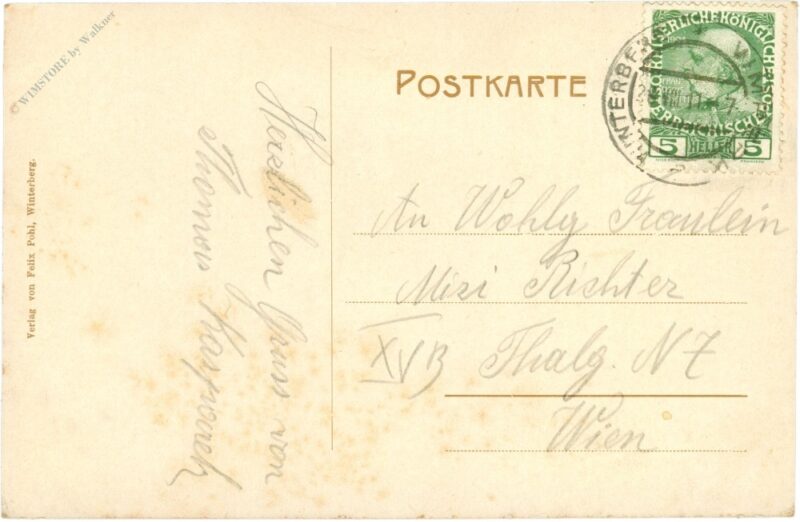 ©WIMSTORE by Walkner
POSTKARTE
KAISERLICHE KÖNIGLICHE
ÖSTERREICHISCHE
5 HELLER 5
WINTERBERG
Herzlichen Gruss von
Thomas
An Wohlg Fraulein
Mizi Richter
XVB Thalg. N 7
Wien
Verlag von Felix Pohl, Winterberg.